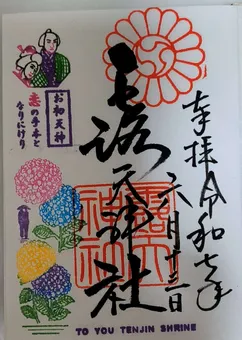 奉拝 令和七年
六月十三日
露天神社
露天
神社
お初天神
恋の手本と
なりにけり
TO YOU TENJIN SHRINE